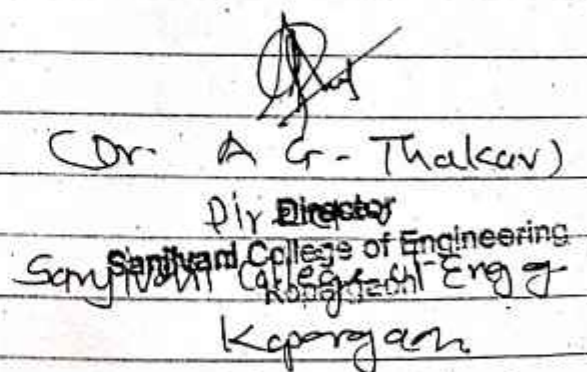 (Dr. A G. Thakar)
Director
Director
Sanjivani College of Engineering
Sanjivani College of Engg
Kopargaon
Kopargaon